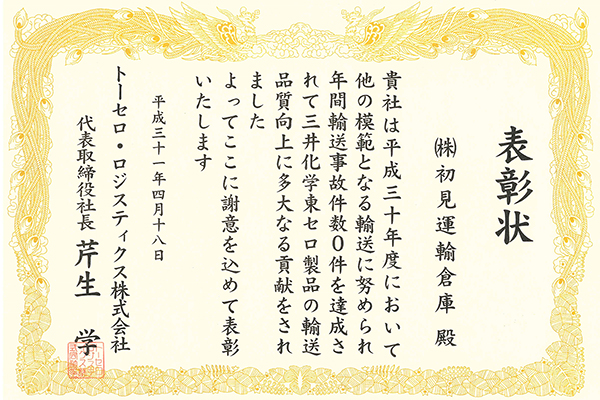 表彰状
㈱初見運輸倉庫 殿
貴社は平成三十年度において
他の模範となる輸送に努められ
年間輸送事故件数0件を達成さ
れて三井化学東セロ製品の輸送
品質向上に多大なる貢献をされ
ました
よってここに謝意を込めて表彰
いたします
平成三十一年四月十八日
トーセロ・ロジスティクス株式会社
代表取締役社長 芹生 学